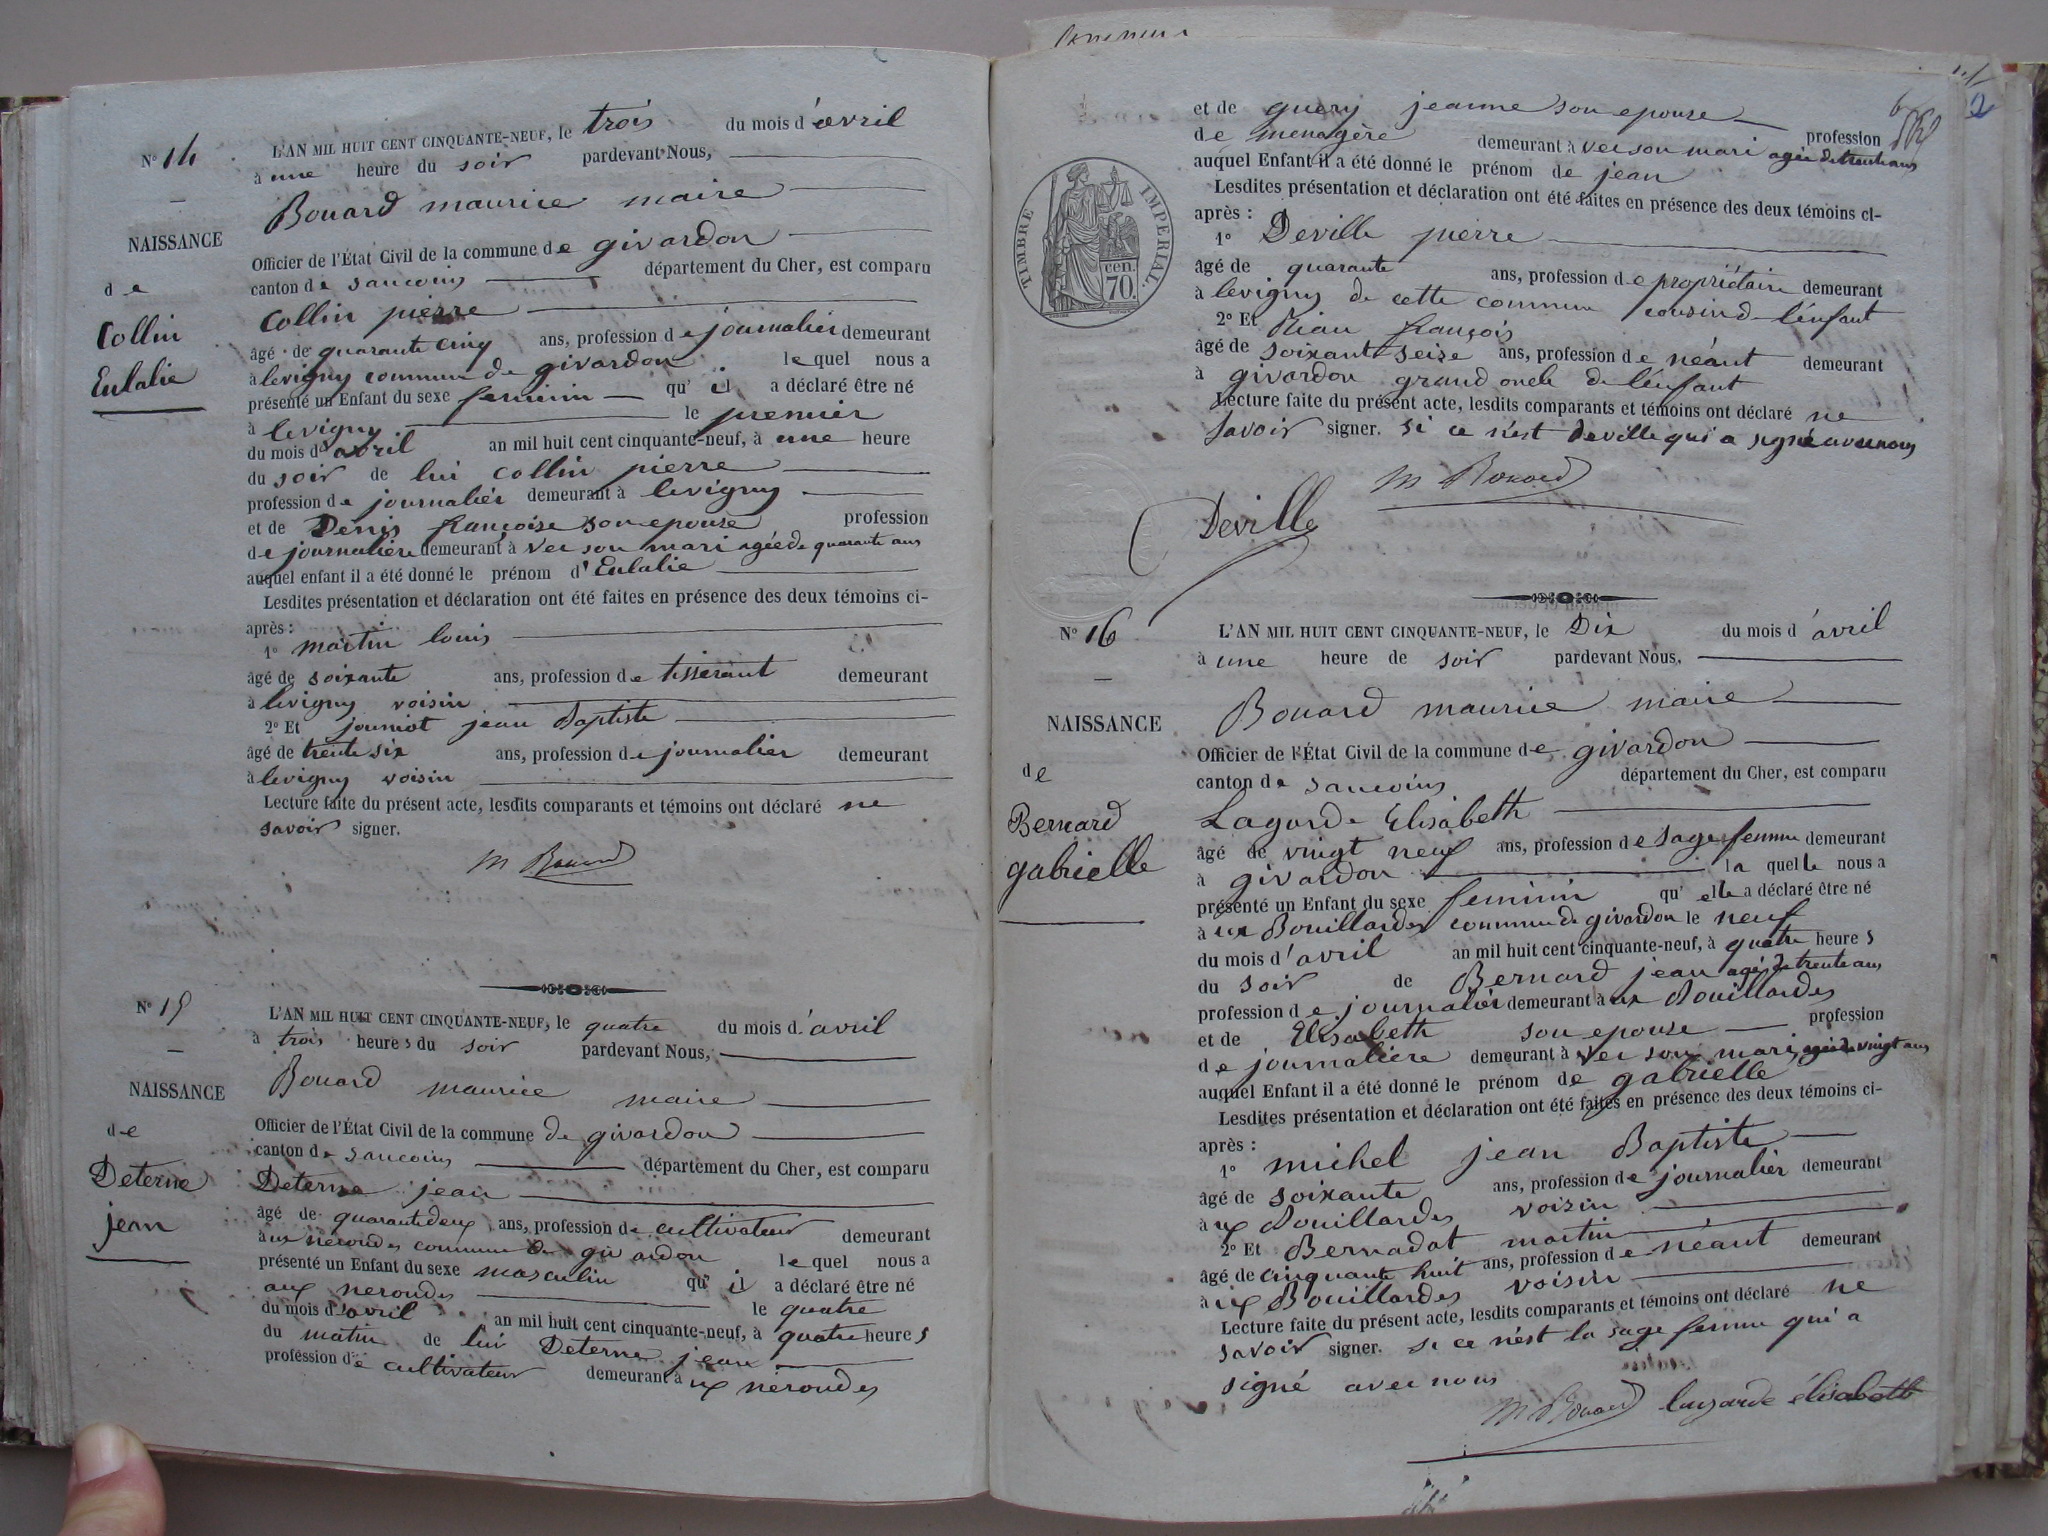 N° 14
NAISSANCE
de
Collin
Eulalie
L'AN MIL HUIT CENT CINQUANTE-NEUF, le trois du mois d'avril
à une heure du soir pardevant Nous,
Bouard maurice maire
Officier de l'État Civil de la commune de givardon
canton de sancoins département du Cher, est comparu
Collin pierre
âgé de quarante cinq ans, profession de journalier demeurant
à levigny commune de givardon lequel nous a
présenté un Enfant du sexe feminin qu'il a déclaré être né
à levigny le premier
du mois d'avril an mil huit cent cinquante-neuf, à une heure
du soir de lui Collin pierre
profession de journalier demeurant à levigny
et de Denis françoise son epouse profession
de journalière demeurant à ver son mari agée de quarante ans
auquel enfant il a été donné le prénom d'Eulalie
Lesdites présentation et déclaration ont été faites en présence des deux témoins ci-
après :
1° martin louis
âgé de soixante ans, profession de tisserant demeurant
à levigny voisin
2° Et jean Baptiste
âgé de trente six ans, profession de journalier demeurant
à levigny voisin
Lecture faite du présent acte, lesdits comparants et témoins ont déclaré ne
savoir signer.
M Bouard
N° 15
NAISSANCE
de
Deterne
jean
L'AN MIL HUIT CENT CINQUANTE-NEUF, le quatre du mois d'avril
à trois heures du soir pardevant Nous,
Bouard maurice maire
Officier de l'État Civil de la commune de givardon
canton de sancoins département du Cher, est comparu
Deterne jean
âgé de quarante deux ans, profession de cultivateur demeurant
aux nerondes commune de givardon lequel nous a
présenté un Enfant du sexe masculin qu'il a déclaré être né
aux nerondes le quatre
du mois d'avril an mil huit cent cinquante-neuf, à quatre heures
du matin de lui Deterne jean
profession de cultivateur demeurant à ux nerondes
et de query jeanne son epouse profession
de menagère demeurant à ver son mari agée de trente ans
auquel Enfant il a été donné le prénom de jean
Lesdites présentation et déclaration ont été faites en présence des deux témoins ci-
après :
1° Deville pierre
âgé de quarante ans, profession de propriétaire demeurant
à levigny de cette commune cousin d l'enfant
2° Et Riau françois
âgé de soixante seize ans, profession de néant demeurant
à givardon grand oncle de l'enfant
Lecture faite du présent acte, lesdits comparants et témoins ont déclaré ne
savoir signer. si ce n'est deville qui a signé avec nous
M Bouard
Deville
TIMBRE IMPERIAL.
70 cen.
N° 16
NAISSANCE
de
Bernard
gabrielle
L'AN MIL HUIT CENT CINQUANTE-NEUF, le Dix du mois d'avril
à une heure de soir pardevant Nous,
Bouard maurice maire
Officier de l'État Civil de la commune de givardon
canton de sancoins département du Cher, est comparu
Lagarde Elisabeth
âgé de vingt neuf ans, profession de sage femme demeurant
à givardon laquelle nous a
présenté un Enfant du sexe feminin qu'elle a déclaré être né
à ux Bouillardes commune de givardon le neuf
du mois d'avril an mil huit cent cinquante-neuf, à quatre heures
du soir de Bernard jean agé de trente ans
profession de journalier demeurant à ux Bouillardes
et de Elisabeth son epouse profession
de journaliere demeurant à ver son mari agée de vingt ans
auquel Enfant il a été donné le prénom de gabrielle
Lesdites présentation et déclaration ont été faites en présence des deux témoins ci-
après :
1° michel jean Baptiste
âgé de soixante ans, profession de journalier demeurant
à ux Bouillardes voisin
2° Et Bernadat martin
âgé de cinquante huit ans, profession de néant demeurant
à ux Bouillardes voisin
Lecture faite du présent acte, lesdits comparants et témoins ont déclaré ne
savoir signer. si ce n'est la sage femme qui a
signé avec nous
M Bouard lagarde élisabeth